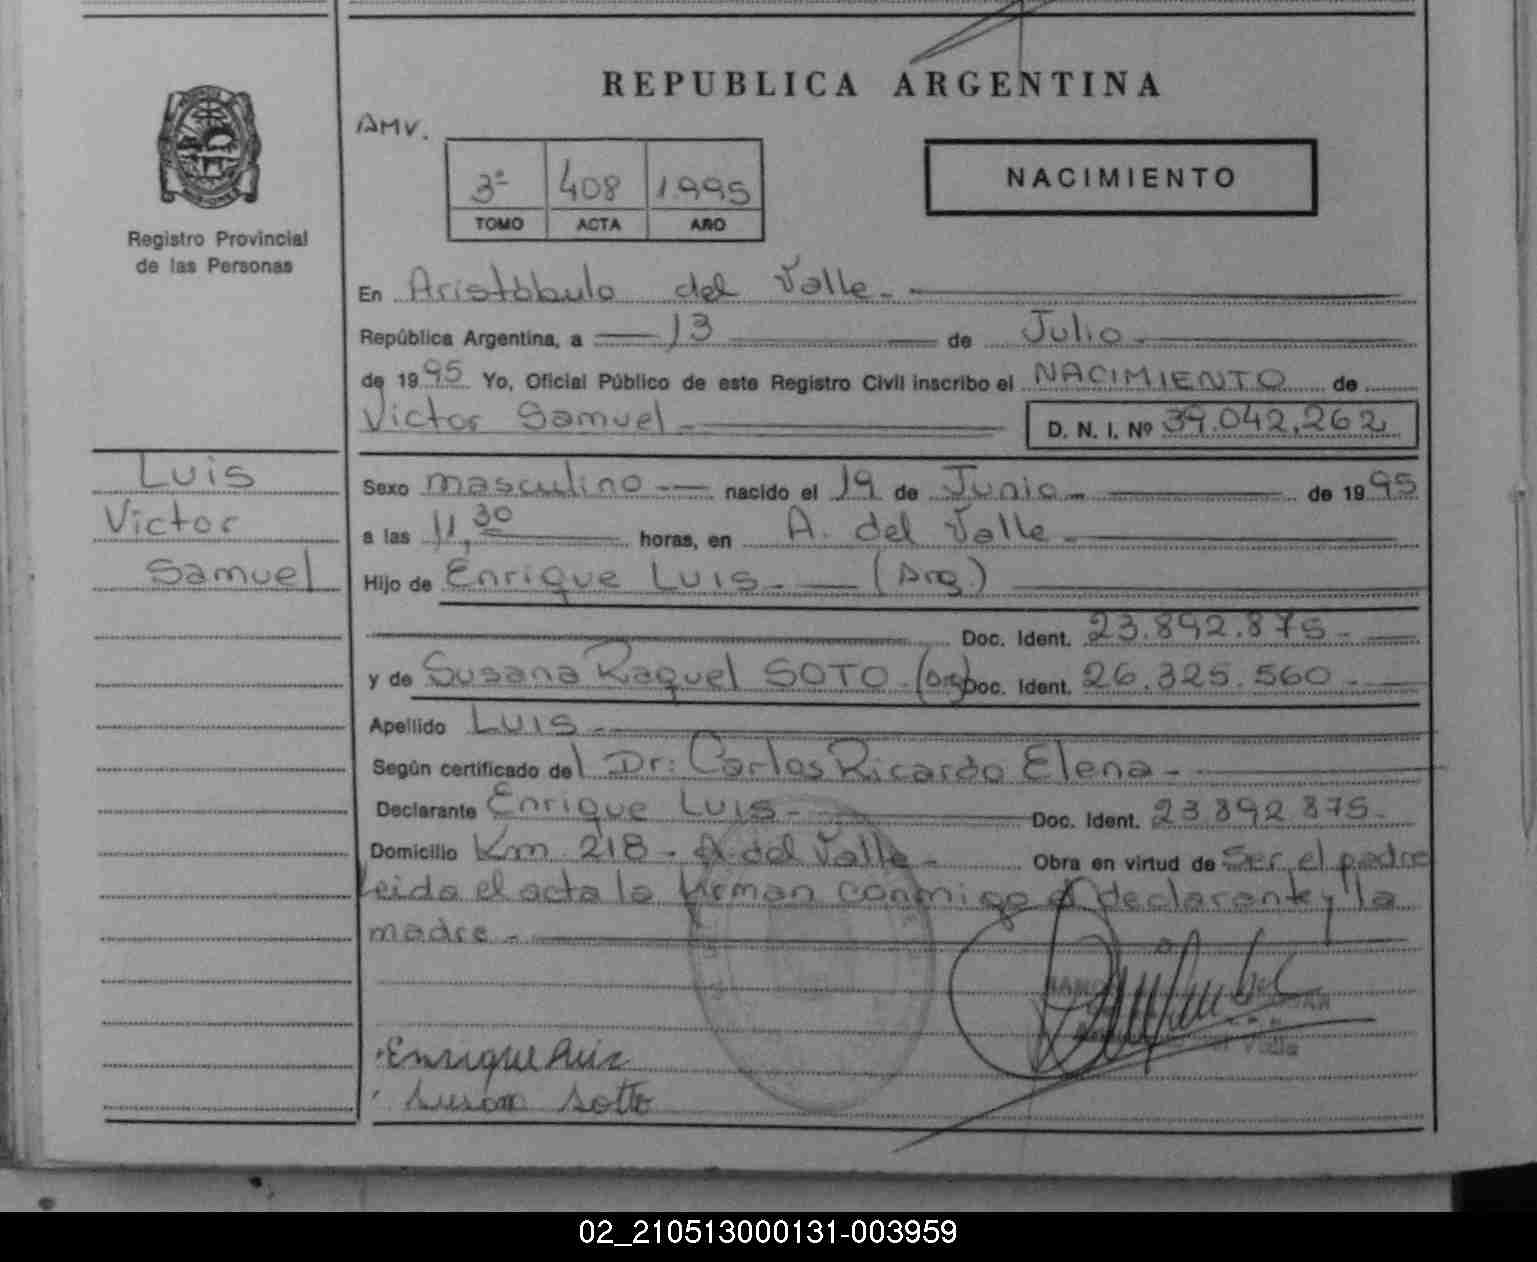 REPUBLICA ARGENTINA
AMV.
3ª 408 1.995
TOMO ACTA AÑO
NACIMIENTO
Registro Provincial
de las Personas
En Aristóbulo del Valle.-
República Argentina, a 13 de Julio
de 1995 Yo, Oficial Público de este Registro Civil inscribo el NACIMIENTO de
Victor Samuel D. N. I. Nº 39.042.262
Luis
Victor
Samuel
Sexo masculino nacido el 19 de Junio de 1995
a las 11,30 horas, en A. del Valle.
Hijo de Enrique LUIS. (Arg)
Doc. Ident. 23.892.875-
y de Susana Raquel SOTO.(Arg) Doc. Ident. 26.325.560-
Apellido LUIS.
Según certificado del Dr: Carlos Ricardo Elena-
Declarante Enrique LUIS- Doc. Ident. 23892875-
Domicilio Km 218- A del Valle- Obra en virtud de Ser el padre
Leida el acta la firman conmigo el declarante y la
madre.-
Enrique Luis
Susan Sotto
02_210513000131-003959